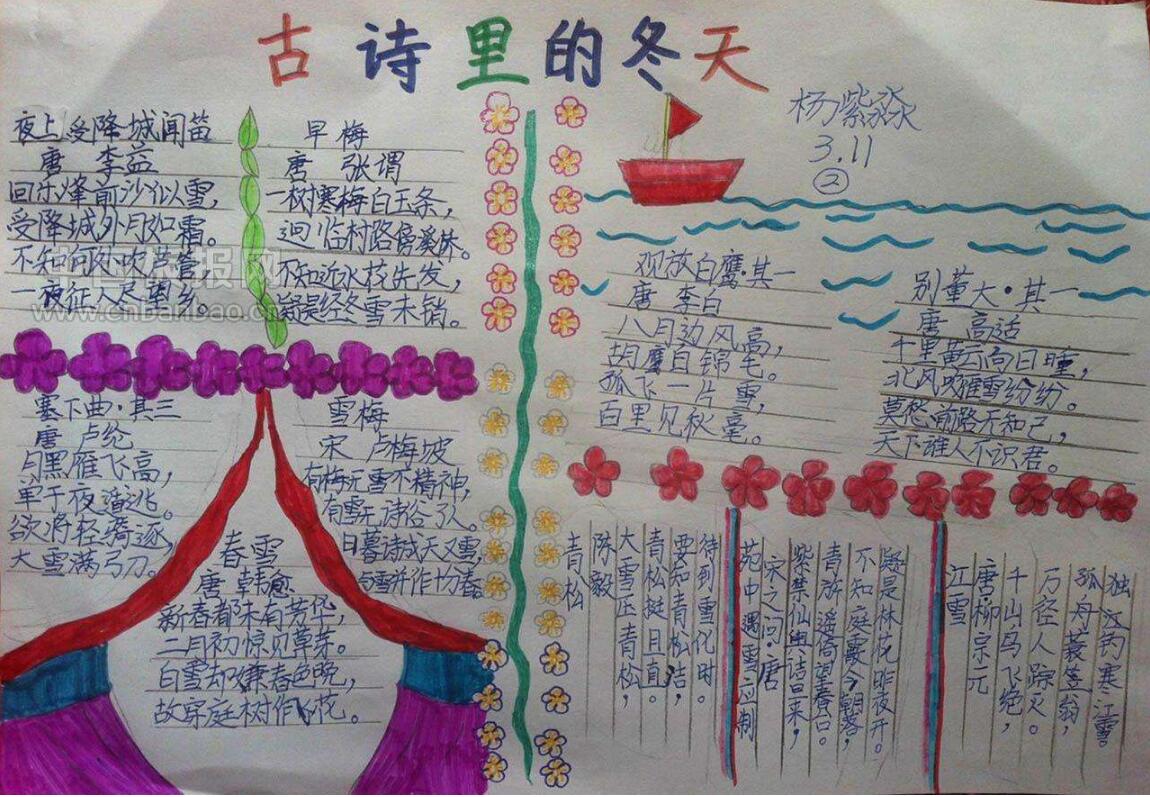 古诗里的冬天
杨紫淼
3.11
②
夜上受降城闻笛
唐 李益
回乐烽前沙似雪，
受降城外月如霜。
不知何处吹芦管，
一夜征人尽望乡。
早梅
唐 张谓
一树寒梅白玉条，
迥临村路傍溪桥。
不知近水花先发，
疑是经冬雪未销。
www.cnbanbao.cn
塞下曲·其三
唐 卢纶
月黑雁飞高，
单于夜遁逃。
欲将轻骑逐，
大雪满弓刀。
雪梅
宋 卢梅坡
有梅无雪不精神，
有雪无诗俗了人。
日暮诗成天又雪，
与雪并作十分春。
春雪
唐 韩愈
新春都未有芳华，
二月初惊见草芽。
白雪却嫌春色晚，
故穿庭树作飞花。
观放白鹰·其一
唐 李白
八月边风高，
胡鹰白锦毛。
孤飞一片雪，
百里见秋毫。
别董大·其一
唐 高适
千里黄云白日曛，
北风吹雁雪纷纷。
莫愁前路无知己，
天下谁人不识君。
青松
陈毅
大雪压青松，
青松挺且直。
要知青松洁，
待到雪化时。
苑中遇雪应制
宋之问·唐
紫禁仙舆诘旦来，
青旂遥倚望春台。
不知庭霰今朝落，
疑是林花昨夜开。
江雪
唐柳宗元
千山鸟飞绝，
万径人踪灭。
孤舟蓑笠翁，
独江钓寒江雪。